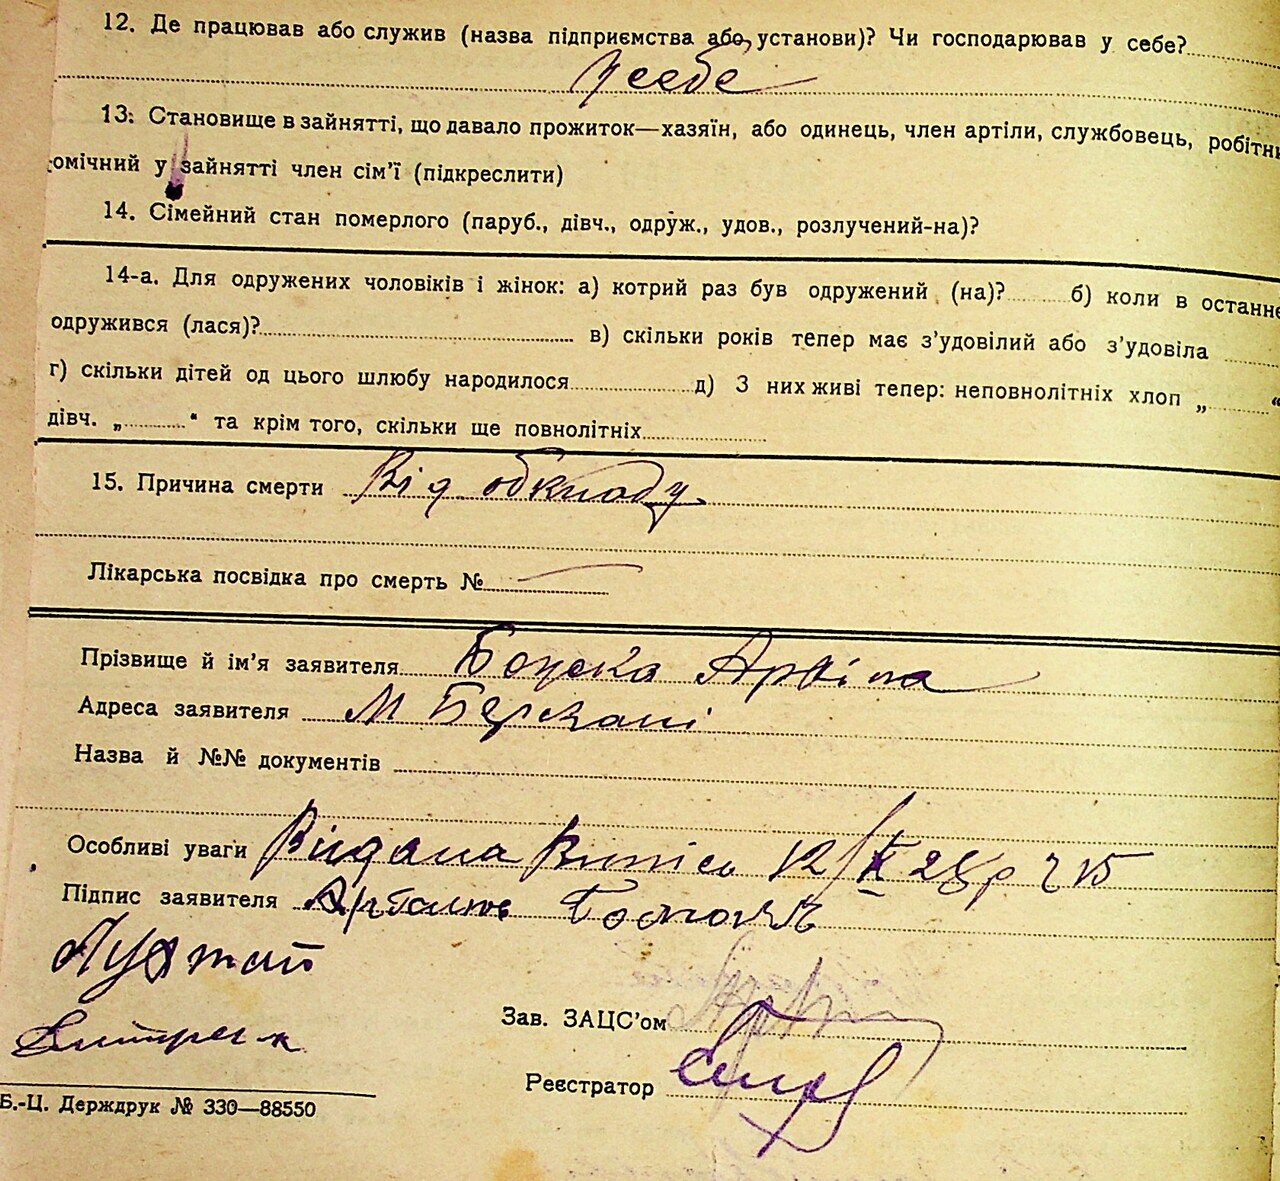 12. Де працював або служив (назва підприємства або установи)? Чи господарював у себе?
у себе
13. Становище в зайнятті, що давало прожиток—хазяїн, або одинець, член артіли, службовець, робітн
омічний у зайнятті член сім'ї (підкреслити)
14. Сімейний стан померлого (паруб., дівч., одруж., удов., розлучений-на)?
14-а. Для одружених чоловіків і жінок: а) котрий раз був одружений (на)? б) коли в останнє
одружився (лася)? в) скільки років тепер має з'удовілий або з'удовіла
г) скільки дітей од цього шлюбу народилося д) З них живі тепер: неповнолітніх хлоп „ “
дівч. „ “ та крім того, скільки ще повнолітніх
15. Причина смерти Від обкладу
Лікарська посвідка про смерть №
Прізвище й ім'я заявителя Архіпа
Адреса заявителя М Березані
Назва й №№ документів
Особливі уваги Видана Випись 12/IX 28р ч 15
Підпис заявителя
Зав. ЗАЦС'ом
Реєстратор
Б.-Ц. Держдрук № 330—88550